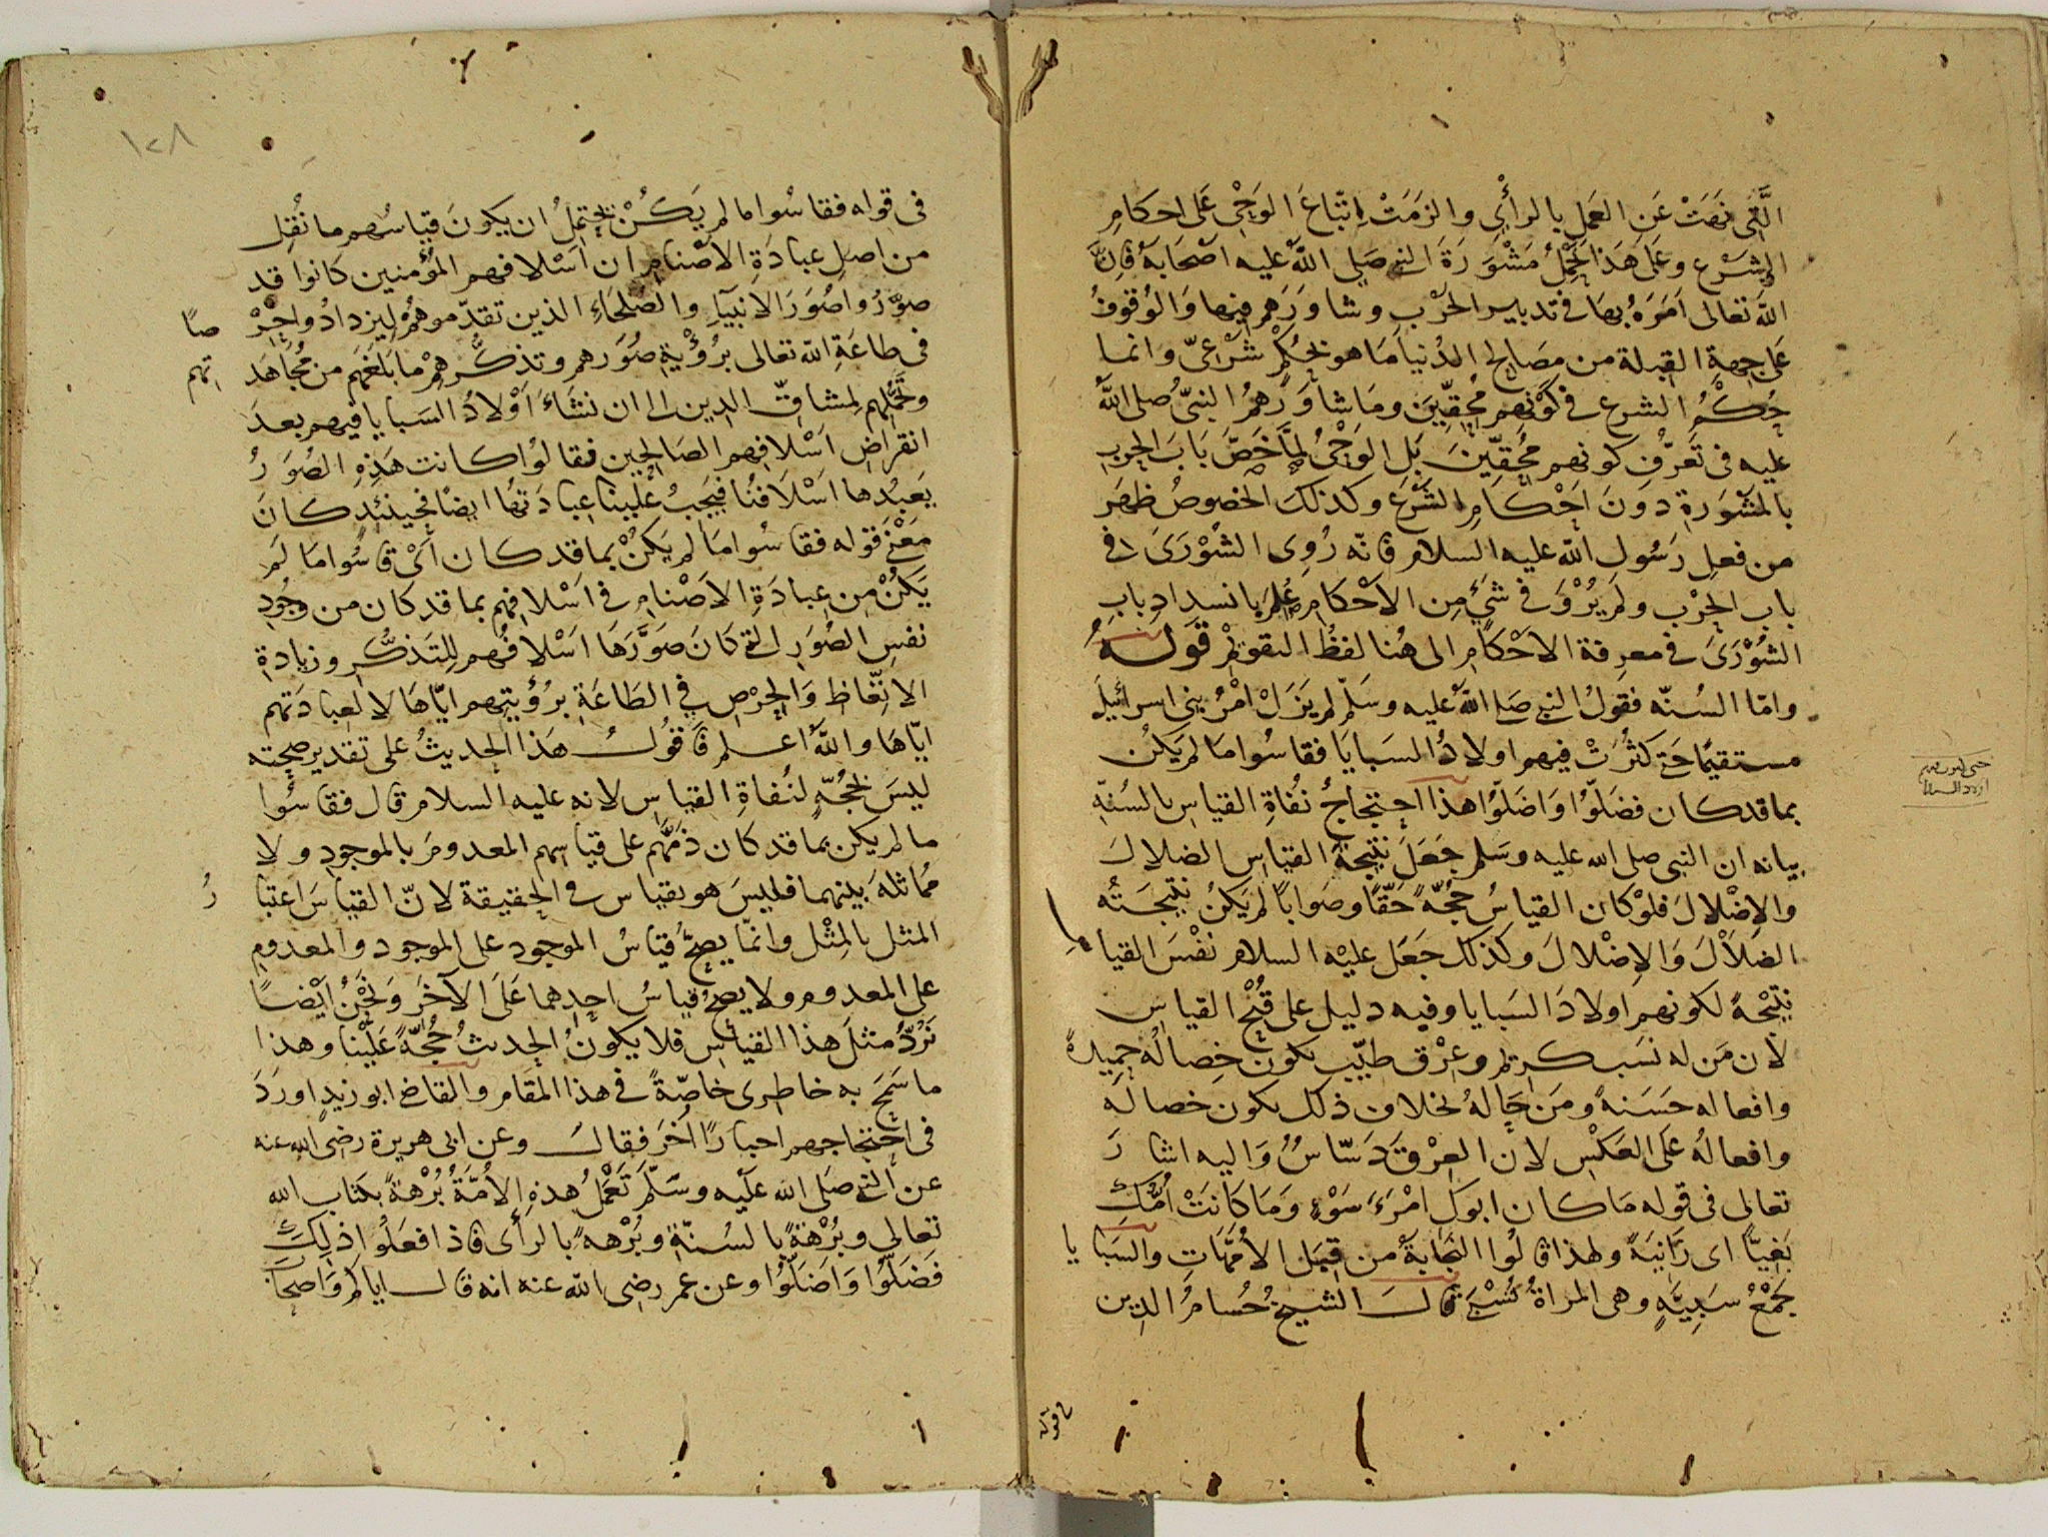 الَّتِى نَهَتْ عَنِ العَمَلِ بالرأْىِ والزمَتْ اتّباعَ الوَحْىِ عَلى احكامِ
الشرْعِ وعَلى هَذا تُحْمَلُ مَشْوَرَةُ النبى صَلى اللّه عليه اصْحَابَهُ فَاِنَّ
اللّهَ تعالى اَمَرَهُ بهَا فى تدبيرِ الحَرْبِ وشاوَرَهم فيها وَالوُقوفُ
عَلى جهةِ القِبلة من مصَالح الدُنيا مَا هو بحُكْمٍ شَرْعىّ وَانما
حُكْمُ الشرع فى كَوْنِهم مُحِقِّينَ ومَا شاوَرَهمُ النبىُّ صلى اللّه
عليه فى تَعَرُّفِ كونهم مُحِقِّينَ بَلِ الوَحْىُ لمَّا خَصَّ بَابَ الحربِ
بالمَشْوَرَةِ دونَ اَحْكامِ الشَرْعِ وكذلك الخصوصُ ظهَرَ
من فعلِ رَسُول اللّه عليه السلام فانّه رُوِى الشوْرَى فى
باب الحرْبِ ولم يُرْوَ فى شئٍ مِن الاَحْكامِ عُلِمَ بانسدادِ بابِ
الشُوْرَى فى معرفة الاَحْكامِ الى هُنا لفظُ التقويم قولهُ
وامّا السُنّه فقولُ النبى صَلى اللّه عليه وسَلّم لم يَزَلْ امْرُ بنى اسرائيل
مستقيمًا حَتى كثُرَتْ فيهم اولادُ السبايَا فقاسُوا مَا لم يَكنْ
بما قد كان فضَلّوُا وَاضَلّوُا هذا احتِجاجُ نفُاةِ القياسِ بالسُنّةِ
بيانه ان النبى صلى الله عليه وسَلم جَعَلَ نتيجةَ القياسِ الضلالَ
والاِضْلالَ فلوْ كان القياسُ حجُّةً حَقًّا وصَوابًا لم يَكنْ نتيجَتُه
الضلاَلَ وَالاِضْلالَ وكذلك جَعَلَ عليْه السلام نَفْسَ القيا س
نتيجْةً لكونهم اولادَ السَبايا وفيه دليل على قُبْحِ القياس
لاَن مَن له نسَب كريم وعِرْق طيّب يكون خِصالُه حميدةً
وافعاله حَسَنةً ومَن حَالهُ بخلاف ذلك يكون خصالُه
وافعالُه على العَكْسِ لان العِرْقَ دَسّاسٌ وَاليه اشارَ
تعالى فى قوله مَا كان ابوكِ امْرَءَ سَوْءٍ وَمَا كَانَتْ اُمُّكِ
بَغِيّاً اى زَانيَةً ولهذا قالُوا النجَابةُ من قِبَل الاُمّهَاتِ والسَبايا
جَمْعُ سَبِيَّةٍ وهى المراةُ تُسْبَى قالَ الشيخ حُسامُ الدين
فى قوله فقاسُوا ما لم يَكُنْ يحتملُ ان يكونَ قياسُهم ما نُقِل
من اصلِ عبادَةِ الاَصْنامِ ان اَسْلافهم المؤمنين كانوا قد
صوَّرُوا صُوَرَ الاَنبيآءِ والصُلحَاءِ الذين تقدّموهمُ ليزدادُوا حِرْ صًا
فى طاعَةِ اللّه تعالى برُؤْيةِ صُوَرهم وتذكُّرهِمْ ما بلَغَهم من مُجاهَد اتهم
وتَحَمُّلِهم لِمشاقّ الدين الى ان نشَاءَ اَوْلادُ السَبايا فيهم بعدَ
انقراضِ اَسْلافِهم الصَالحين فقالوُا كانت هَذِهِ الصُوَرُ
يَعبُدها اَسْلاَفنُا فيَجبُ عَلينا عبادَتهُا ايضًا فحينئذٍ كانَ
مَعْنى قوله فقاسُوا مَا لم يَكنْ بما قد كان اَىْ قاسُوا مَا لَم
يَكُنْ مِن عبادَةِ الاَصْنامِ فى اَسْلافهم بما قد كان من وجُودِ
نفسِ الصُوَرِ التى كَانَ صَوَّرَهَا اَسْلافُهم لِلتَذكُّرِ وزيادةِ
الاتّعاظِ وَالحِرْصِ فى الطَاعَةِ برُؤيتهم ايّاهَا لا لعبادَتهم
ايّاهَا واللّهُ اعلم فاقولُ هَذا الحديثُ على تقدير صحته
ليسَ بحُجّةٍ لنُفاةِ القياسِ لانه عليه السلام قال فقاسُوا
ما لم يكن بما قد كان ذمَّهم على قياسِهم المعدومَ بالموجودِ ولا
مُماثلةَ بينهما فليسَ هو بقياس فى الحقيقة لانّ القياسَ اعتبا رُ
المثل بالمِثْل وانّما يصحُّ قياسُ الموجود على الموجود والمعدومِ
على المعدوم ولا يصحُّ قياسُ احدِهما عَلَى الآخَرِ وَنحْنُ ايْضًا
نَرُدُّ مثلَ هذا القياسِ فلا يكونُ الحديثُ حُجّةً عَليْنا وهذا
ما سَمَحَ به خاطِرى خاصّةً فى هذا المقَام والقاضى ابو زيدٍ اورَدَ
فى احتِجاجهم اخبارًا اُخَرَ فقال وعن ابى هريرة رضى الله عنه
عن النبى صَلى الله عليه وسَلّم تَعْمَلُ هذهِ الاُمّةُ بُرْهةً بكتاب الله
تعالى وبُرْهةً بالسُنّةِ وبُرْهةً بالرأى فاذا فعَلُوا ذلِكَ
فَضَلّوُا وَاَضَلّوُا وعن عمر رضى اللّه عنه انه قال اياكم وَاصحَابَ
١٢٨